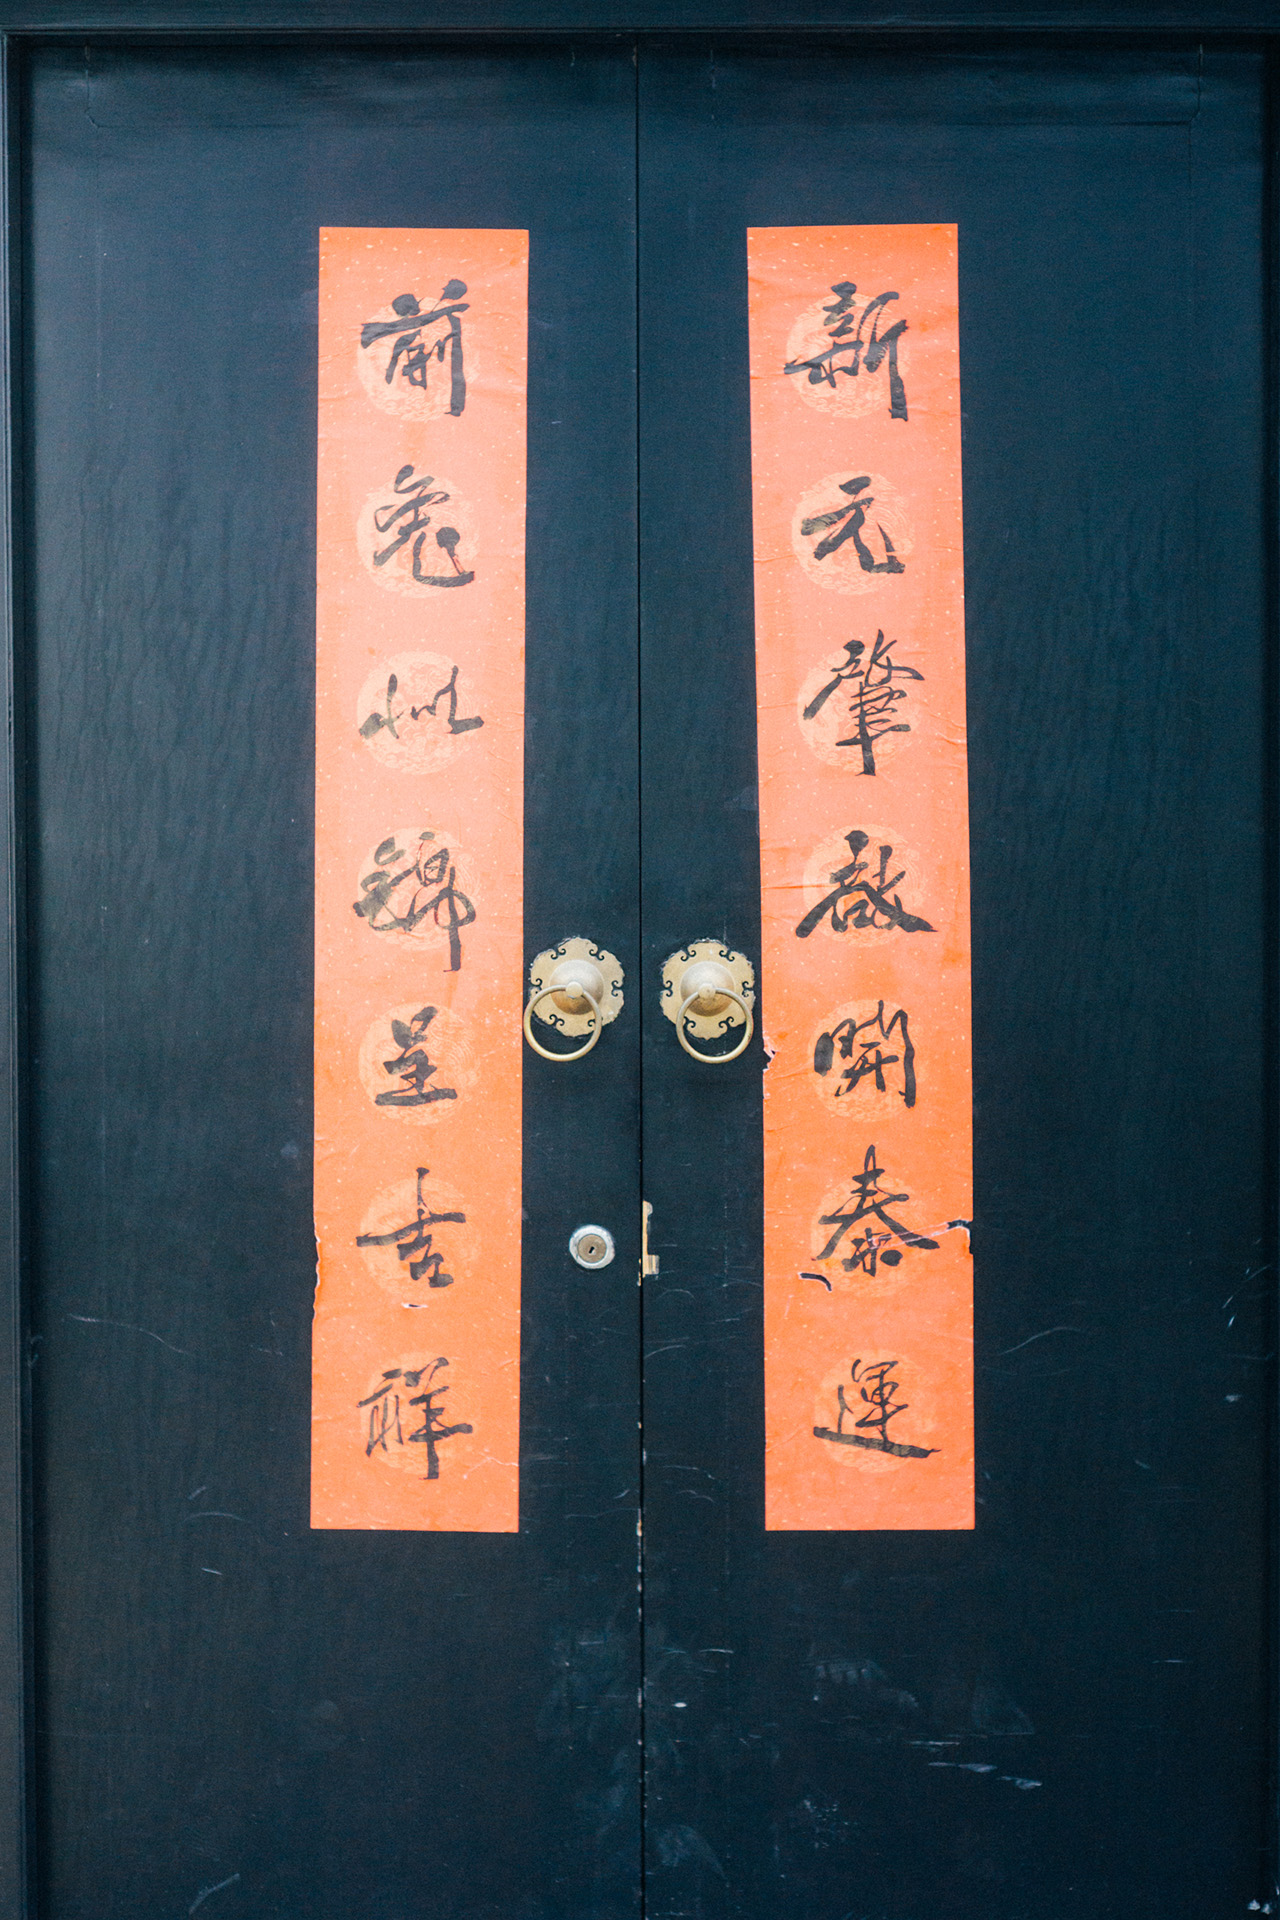 新元肇啟開泰運
前兔似錦呈吉祥